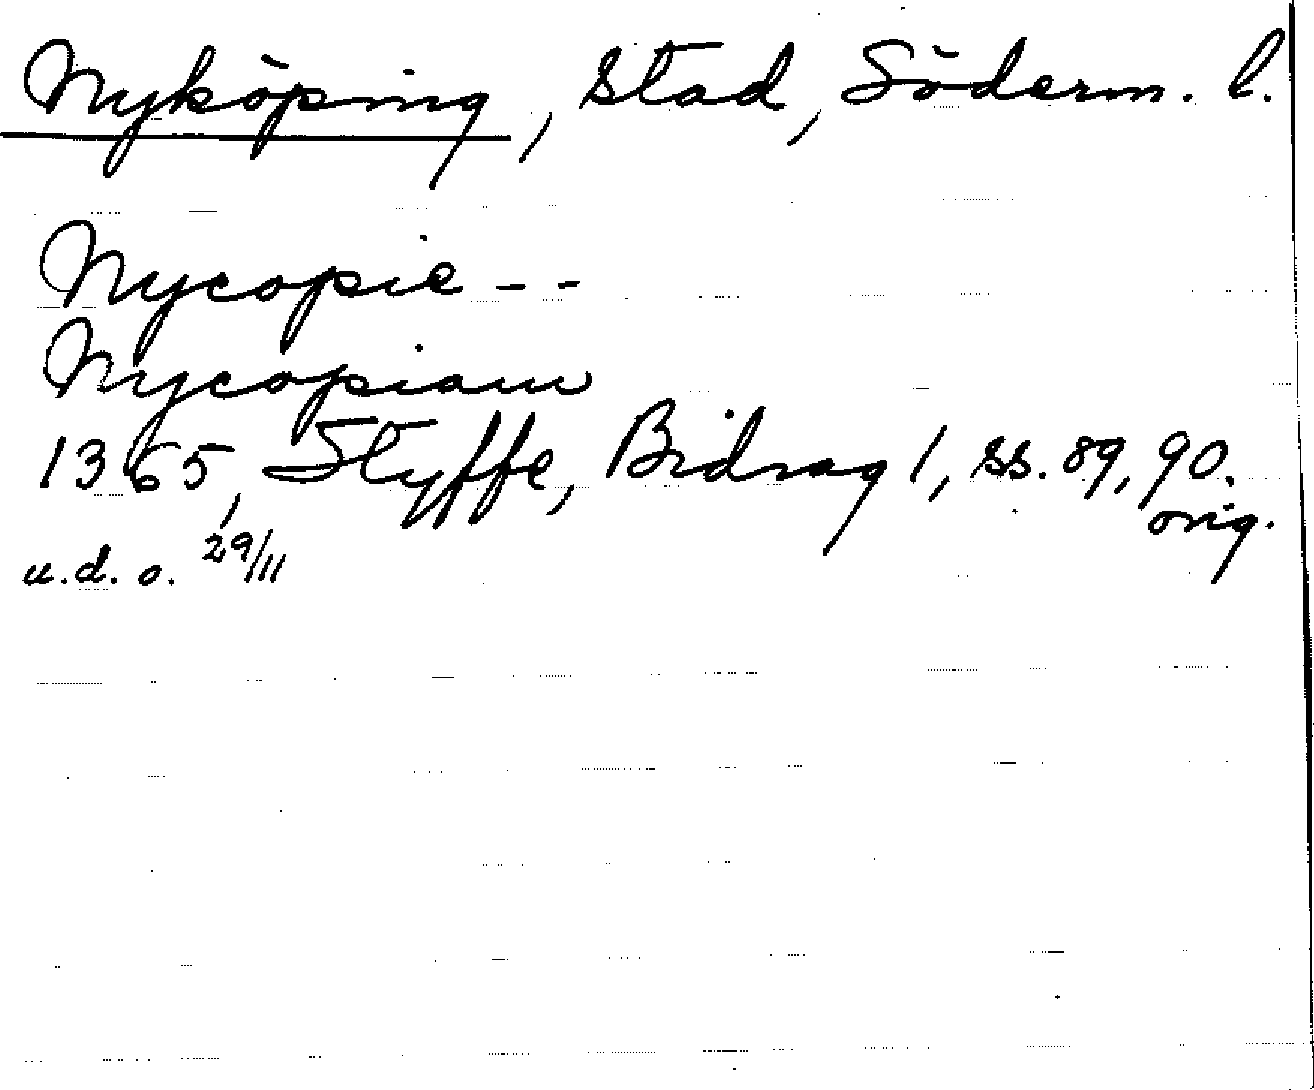 Nyköping, stad, Söderm. l.
Nycopie - -
Nycopiam
1365, Styffe, Bidrag 1, ss. 89, 90.
orig.
u.d. o. 29/11